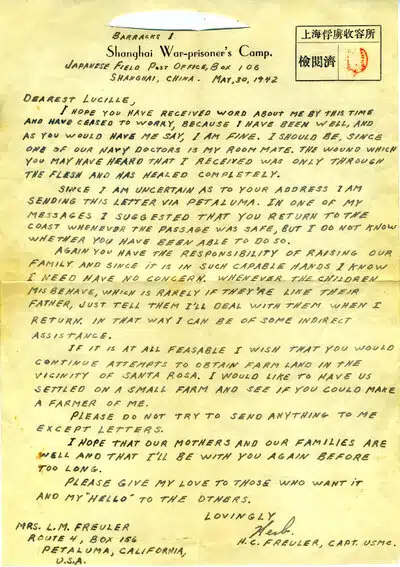 BARRACKS 1
Shanghai War-prisoner's Camp.
JAPANESE FIELD POST OFFICE, BOX 106
SHANGHAI, CHINA. MAY, 30, 1942
上海俘虜收容所
檢閱濟
DEAREST LUCILLE,
I HOPE YOU HAVE RECEIVED WORD ABOUT ME BY THIS TIME
AND HAVE CEASED TO WORRY, BECAUSE I HAVE BEEN WELL, AND
AS YOU WOULD HAVE ME SAY, I AM FINE. I SHOULD BE, SINCE
ONE OF OUR NAVY DOCTORS IS MY ROOM MATE. THE WOUND WHICH
YOU MAY HAVE HEARD THAT I RECEIVED WAS ONLY THROUGH
THE FLESH AND HAS HEALED COMPLETELY.
SINCE I AM UNCERTAIN AS TO YOUR ADDRESS I AM
SENDING THIS LETTER VIA PETALUMA. IN ONE OF MY
MESSAGES I SUGGESTED THAT YOU RETURN TO THE
COAST WHENEVER THE PASSAGE WAS SAFE, BUT I DO NOT KNOW
WHETHER YOU HAVE BEEN ABLE TO DO SO.
AGAIN YOU HAVE THE RESPONSIBILITY OF RAISING OUR
FAMILY AND SINCE IT IS IN SUCH CAPABLE HANDS I KNOW
I NEED HAVE NO CONCERN. WHENEVER THE CHILDREN
MISBEHAVE, WHICH IS RARELY IF THEY'RE LIKE THEIR
FATHER, JUST TELL THEM I'LL DEAL WITH THEM WHEN I
RETURN. IN THAT WAY I CAN BE OF SOME INDIRECT
ASSISTANCE.
IF IT IS AT ALL FEASABLE I WISH THAT YOU WOULD
CONTINUE ATTEMPTS TO OBTAIN FARM LAND IN THE
VICINITY OF SANTA ROSA. I WOULD LIKE TO HAVE US
SETTLED ON A SMALL FARM AND SEE IF YOU COULD MAKE
A FARMER OF ME.
PLEASE DO NOT TRY TO SEND ANYTHING TO ME
EXCEPT LETTERS.
I HOPE THAT OUR MOTHERS AND OUR FAMILIES ARE
WELL AND THAT I'LL BE WITH YOU AGAIN BEFORE
TOO LONG.
PLEASE GIVE MY LOVE TO THOSE WHO WANT IT
AND MY "HELLO" TO THE OTHERS.
LOVINGLY
Herb.
H.C. FREULER, CAPT. USMC.
MRS. L.M. FREULER
ROUTE 4, BOX 156
PETALUMA, CALIFORNIA,
U.S.A.